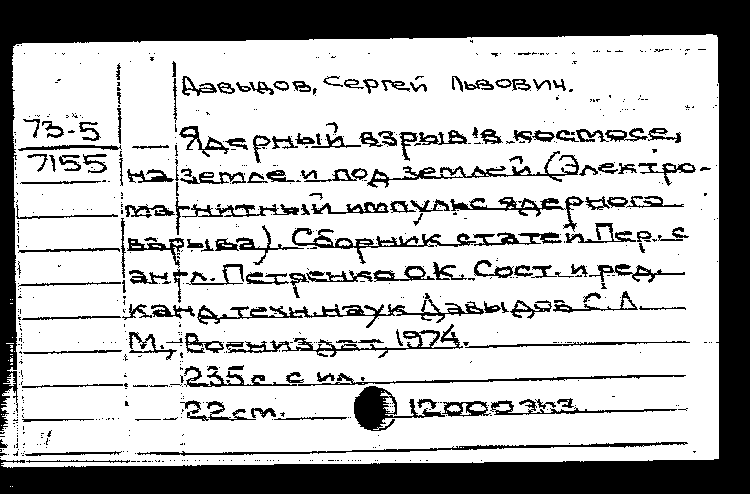 Давыдов, Сергей Львович.
73-5
7155
Ядерный взрыв в космосе,
на земле и под землей. (Электро-
магнитный импульс ядерного
взрыва). Сборник статей. Пер. с
англ. Петренко О.К. Сост. и ред.
канд. техн. наук Давыдов С.Л.
М., Воениздат, 1974.
235 с. с ил.
22 см. 12000 экз.